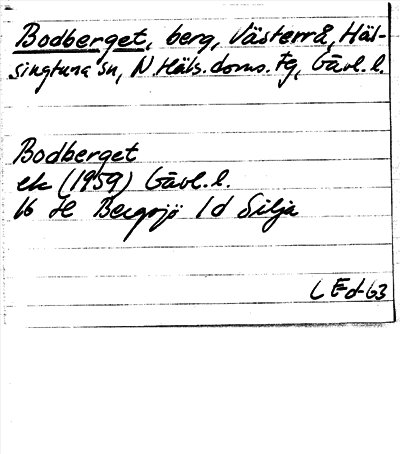 Bodberget, berg, Västerrå, Häl-
singtuna sn, N Häls. doms. tg, Gävl. l.
Bodberget
ek (1959) Gävl. l.
16 H Bergsjö 1 d Silja
L E-d-63